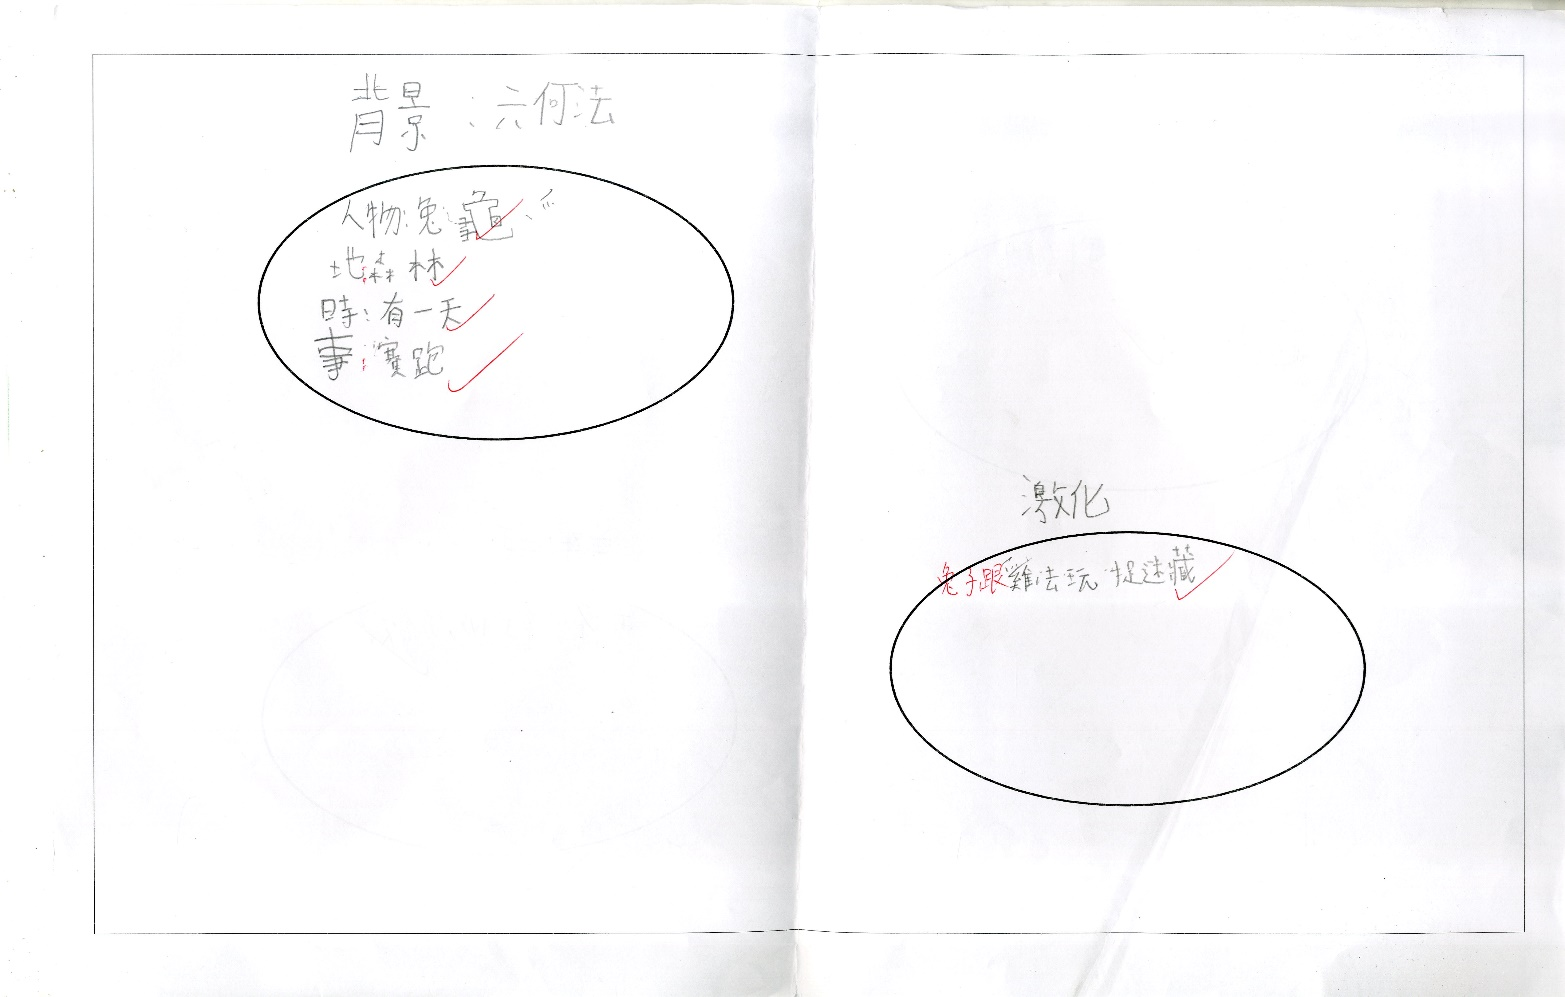 背景：六何法
人物：兔、龜、
地：森林
時：有一天
事：賽跑
激化
兔子跟雞法玩捉迷藏